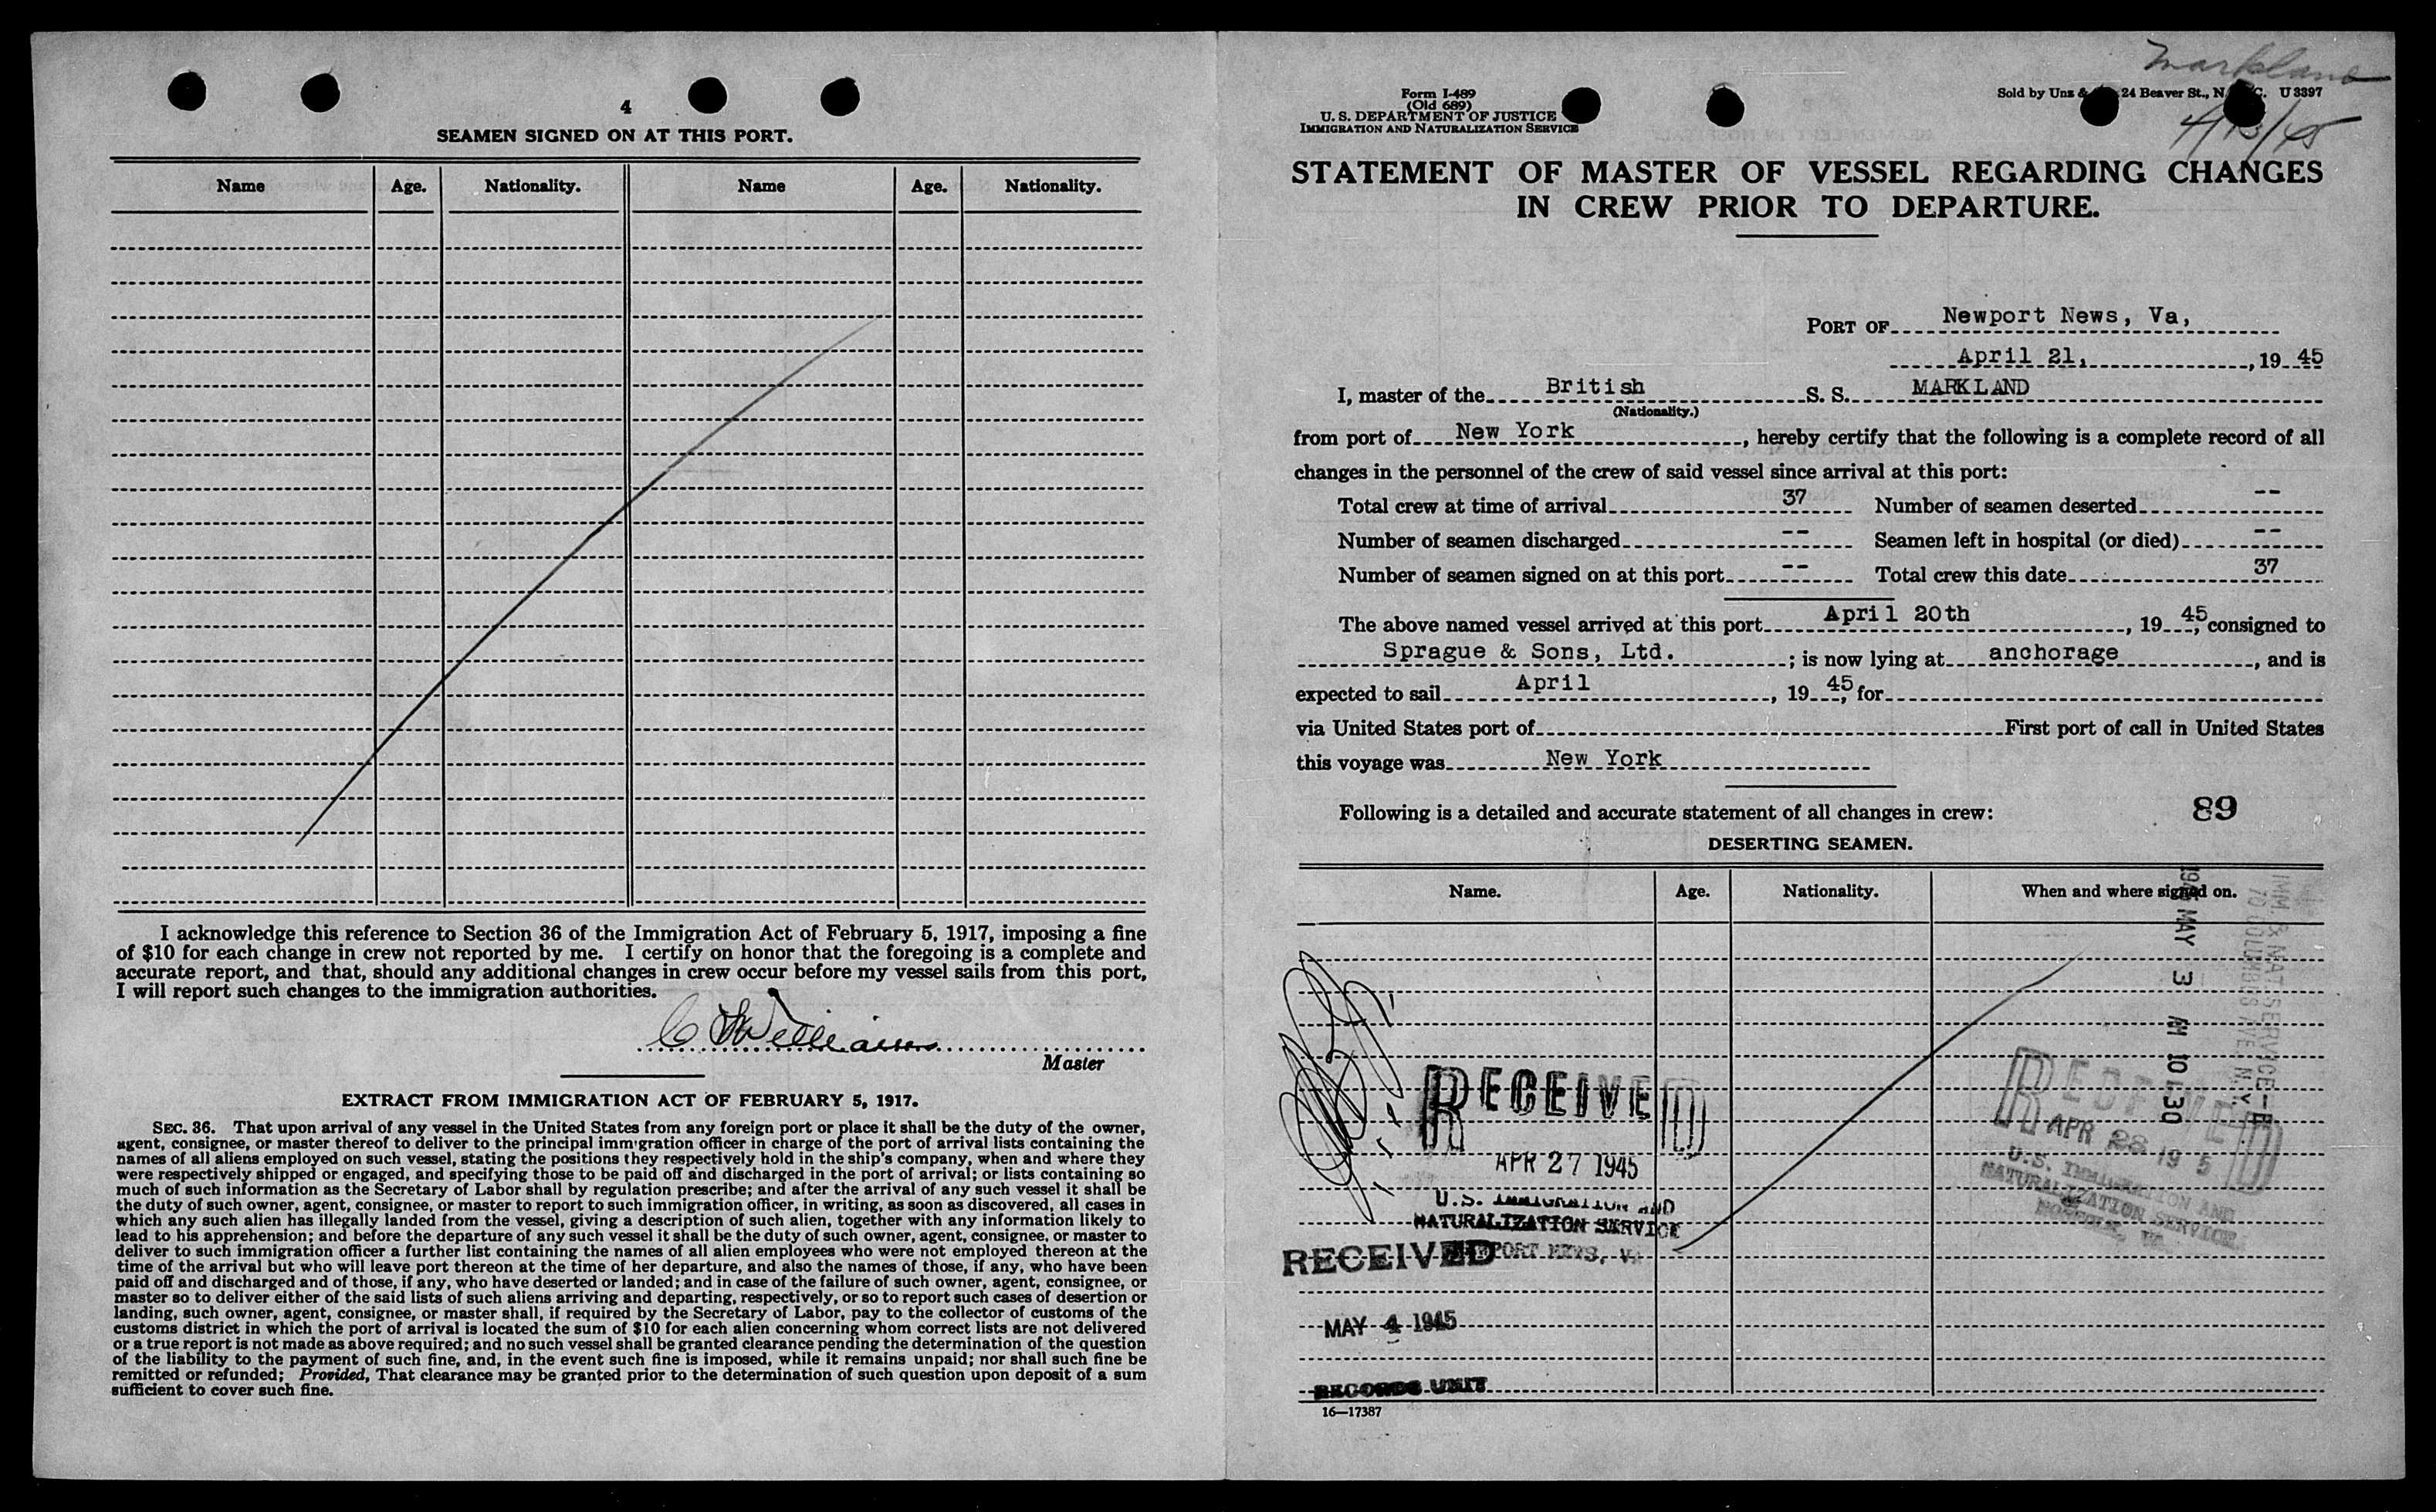 4
SEAMEN SIGNED ON AT THIS PORT.
Name Age. Nationality. Name Age. Nationality.
I acknowledge this reference to Section 36 of the Immigration Act of February 5, 1917, imposing a fine
of $10 for each change in crew not reported by me. I certify on honor that the foregoing is a complete and
accurate report, and that, should any additional changes in crew occur before my vessel sails from this port,
I will report such changes to the immigration authorities.
C Williams
Master
EXTRACT FROM IMMIGRATION ACT OF FEBRUARY 5, 1917.
SEC. 36. That upon arrival of any vessel in the United States from any foreign port or place it shall be the duty of the owner,
agent, consignee, or master thereof to deliver to the principal immigration officer in charge of the port of arrival lists containing the
names of all aliens employed on such vessel, stating the positions they respectively hold in the ship's company, when and where they
were respectively shipped or engaged, and specifying those to be paid off and discharged in the port of arrival; or lists containing so
much of such information as the Secretary of Labor shall by regulation prescribe; and after the arrival of any such vessel it shall be
the duty of such owner, agent, consignee, or master to report to such immigration officer, in writing, as soon as discovered, all cases in
which any such alien has illegally landed from the vessel, giving a description of such alien, together with any information likely to
lead to his apprehension; and before the departure of any such vessel it shall be the duty of such owner, agent, consignee, or master to
deliver to such immigration officer a further list containing the names of all alien employees who were not employed thereon at the
time of the arrival but who will leave port thereon at the time of her departure, and also the names of those, if any, who have been
paid off and discharged and of those, if any, who have deserted or landed; and in case of the failure of such owner, agent, consignee, or
master so to deliver either of the said lists of such aliens arriving and departing, respectively, or so to report such cases of desertion or
landing, such owner, agent, consignee, or master shall, if required by the Secretary of Labor, pay to the collector of customs of the
customs district in which the port of arrival is located the sum of $10 for each alien concerning whom correct lists are not delivered
or a true report is not made as above required; and no such vessel shall be granted clearance pending the determination of the question
of the liability to the payment of such fine, and, in the event such fine is imposed, while it remains unpaid; nor shall such fine be
remitted or refunded; Provided, That clearance may be granted prior to the determination of such question upon deposit of a sum
sufficient to cover such fine.
Markland
Form I-489
(Old 689)
U. S. DEPARTMENT OF JUSTICE
IMMIGRATION AND NATURALIZATION SERVICE
Sold by Unz & 24 Beaver St., N. C. U 3397
4/13/45
STATEMENT OF MASTER OF VESSEL REGARDING CHANGES
IN CREW PRIOR TO DEPARTURE.
PORT OF Newport News, Va,
April 21, , 19 45
I, master of the British S. S. MARKLAND
(Nationality.)
from port of New York , hereby certify that the following is a complete record of all
changes in the personnel of the crew of said vessel since arrival at this port:
Total crew at time of arrival 37 Number of seamen deserted --
Number of seamen discharged -- Seamen left in hospital (or died) --
Number of seamen signed on at this port -- Total crew this date 37
The above named vessel arrived at this port April 20th , 19 45, consigned to
Sprague & Sons, Ltd. ; is now lying at anchorage , and is
expected to sail April , 19 45, for
via United States port of First port of call in United States
this voyage was New York
Following is a detailed and accurate statement of all changes in crew: 89
DESERTING SEAMEN.
Name. Age. Nationality. When and where signed on.
IMM. & NAT. SERVICE
70 COLUMBUS AVE. N.Y.
1945 MAY 3 AM 10 30
RECEIVED
APR 27 1945
U.S. IMMIGRATION AND
NATURALIZATION SERVICE
NEWPORT NEWS, VA
RECEIVED
APR 28 19 5
U.S. IMMIGRATION AND
NATURALIZATION SERVICE
NORFOLK, VA
RECEIVED
MAY 4 1945
RECORDS UNIT
16—17387